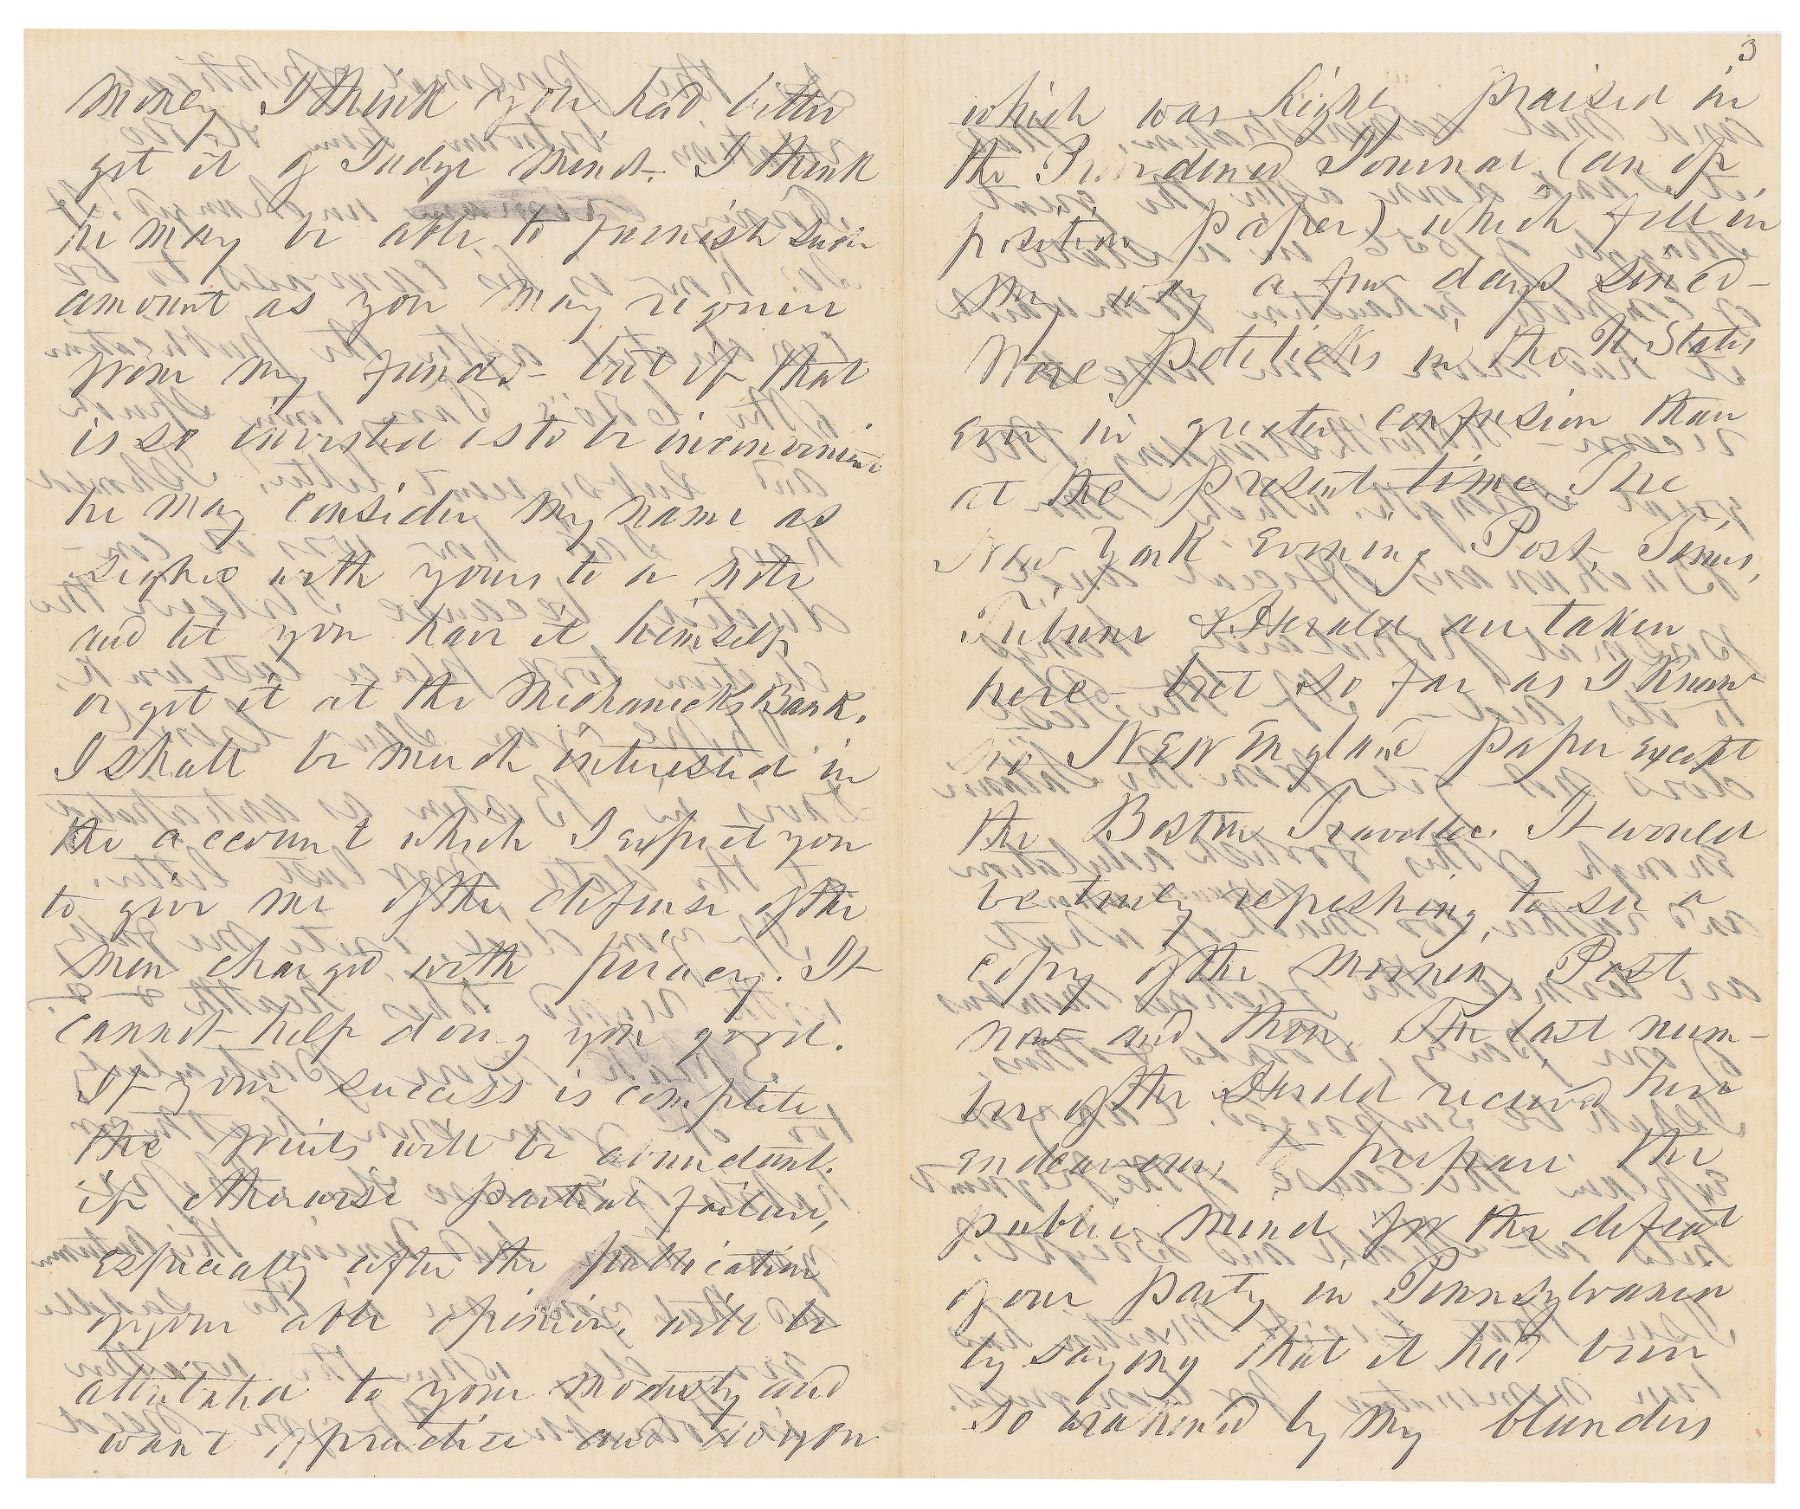 money I think you had better
get it of Judge Ment. I think
he may be able to furnish such
amount as you may require
from my funds - but if that
is so invested as to be inconvenient
he may consider my name as
signed with yours to a note
and let you have it himself
or get it at the Mechanicks Bank.
I shall be much interested in
the account which I expect you
to give me of the defense of the
men charged with piracy. It
cannot help doing you good.
If your success is complete,
the fruits will be abundant.
if otherwise partial failure,
especially after the publication
of your able opinion, will be
attributed to your modesty and
want of practice and do you
3
which was highly praised in
the Providence Journal (an op
position paper) which fell in
my way a few days since -
Were politicks in the U. States
ever in greater confusion than
at the present time. The
New York Evening Post, Times,
Tribune & Herald are taken
here - but so far as I know
no New England paper except
the Boston Traveller. It would
be truly refreshing, to see a
copy of the Morning Post
now and then. The last num-
ber of the Herald received here
endeavours to prepare the
public mind for the defeat
of our party in Pennsylvania
by saying that it had been
so weakened by my blunders